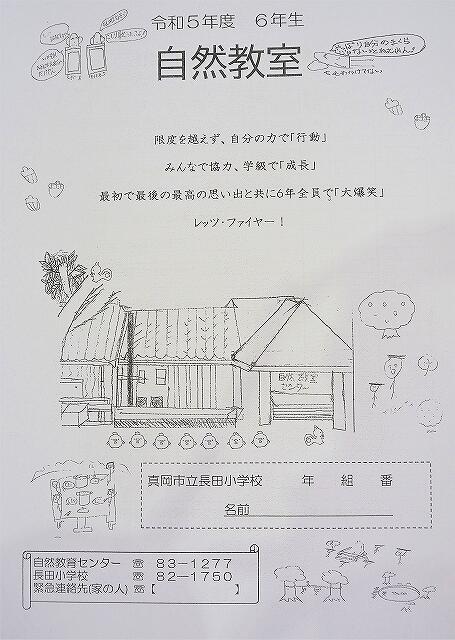 令和5年度 6年生
自然教室
限度を越えず、自分の力で「行動」
みんなで協力、学級で「成長」
最初で最後の最高の思い出と共に6年全員で「大爆笑」
レッツ・ファイヤー！
自然教室
センター
真岡市立長田小学校 年 組 番
名前
自然教育センター ☏ 83-1277
長田小学校 ☏ 82-1750
緊急連絡先(家の人) ☏【 】